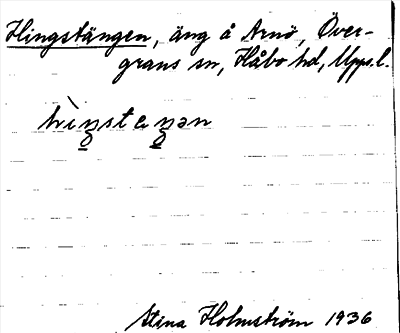 Hingstängen, äng å Arnö, Över-
grans sn, Håbo hd, Upps.l.
Stina Holmström 1936